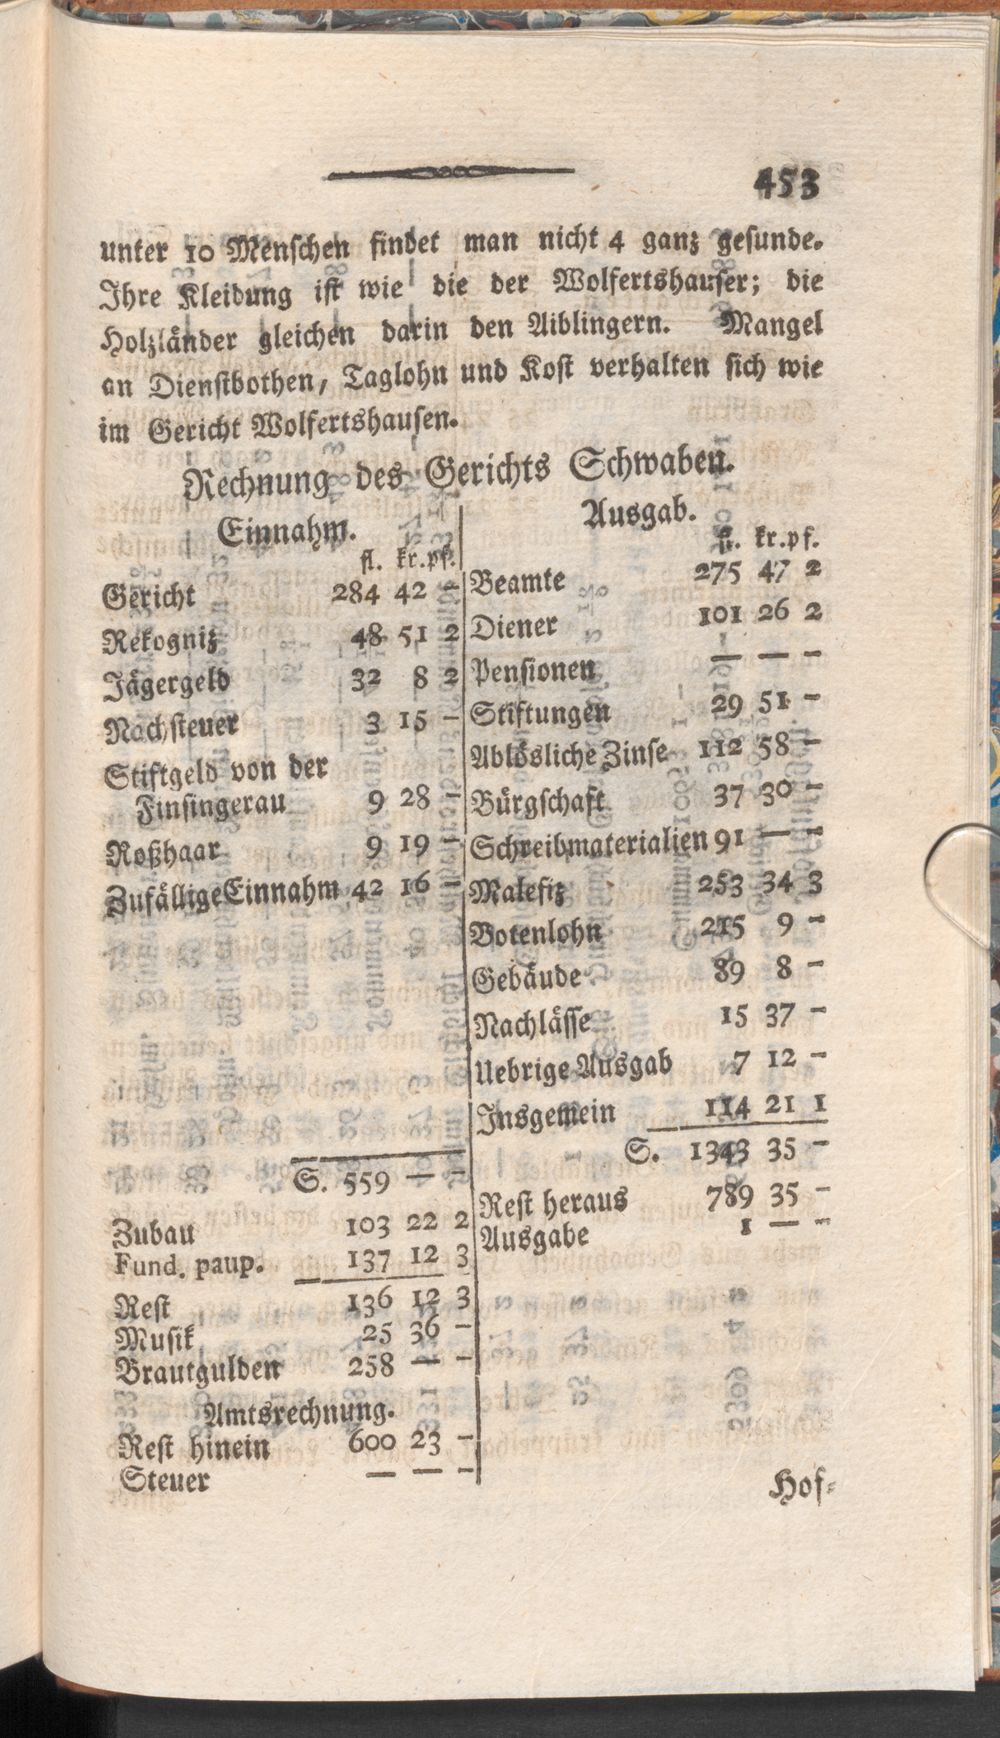 453
unter 10 Menschen findet man nicht 4 ganz gesunde.
Ihre Kleidung ist wie die der Wolfertshauser; die
Holzländer gleichen darin den Aiblingern. Mangel
an Dienstbothen, Taglohn und Kost verhalten sich wie
im Gericht Wolfertshausen.
Rechnung des Gerichts Schwaben.
Einnahm.
fl. kr. pf.
Gericht 284 42 –
Rekogniz 48 51 2
Jägergeld 32 8 2
Nachsteuer 3 15 –
Stiftgeld von der
Finsingerau 9 28 –
Roßhaar 9 19 –
Zufällige Einnahm 42 16 –
S. 559 — –
Zubau 103 22 2
Fund. paup. 137 12 3
Rest 136 12 3
Musik 25 36 –
Brautgulden 258 — –
Amtsrechnung.
Rest hinein 600 23 –
Steuer — — –
Ausgab.
fl. kr. pf.
Beamte 275 47 2
Diener 101 26 2
Pensionen — — –
Stiftungen 29 51 –
Ablösliche Zinse 112 58 –
Bürgschaft 37 30 –
Schreibmaterialien 91 — –
Malefiz 253 34 3
Botenlohn 215 9 –
Gebäude 89 8 –
Nachlässe 15 37 –
Uebrige Ausgab 7 12 –
Insgemein 114 21 1
S. 1343 35 –
Rest heraus 789 35 –
Ausgabe 1 — –
Hof-